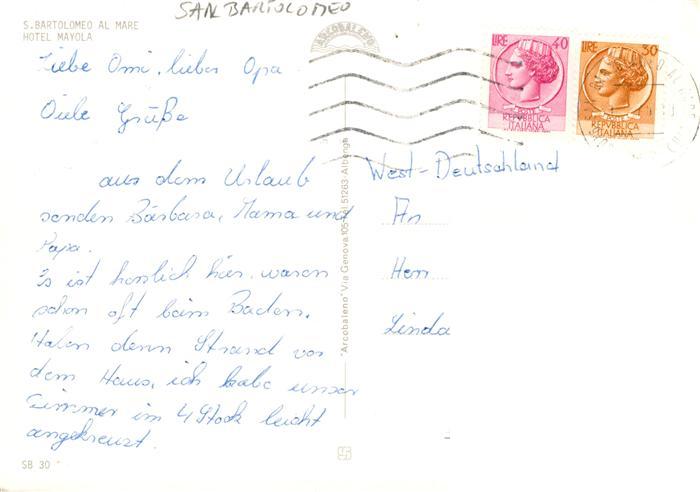 SAN BARTOLOMEO
S.BARTOLOMEO AL MARE
HOTEL MAYOLA
ARCOBALENO
LIRE 40
POSTE
REPVBBLICA
ITALIANA
LIRE 30
POSTE
REPVBBLICA
ITALIANA
Liebe Omi, lieber Opa
Viele Grüße
aus dem Urlaub
senden Bärbara, Mama und
Papa.
Es ist herrlich hier, waren
schon oft beim Baden.
Haben denn Strand vor
dem Haus, ich habe unser
Zimmer im 4 Stock leicht
angekreuzt.
"Arcobaleno" Via Genova, 105 Tel. 51263 Albenga
West-Deutschland
An
Herr
Linda
SB 30